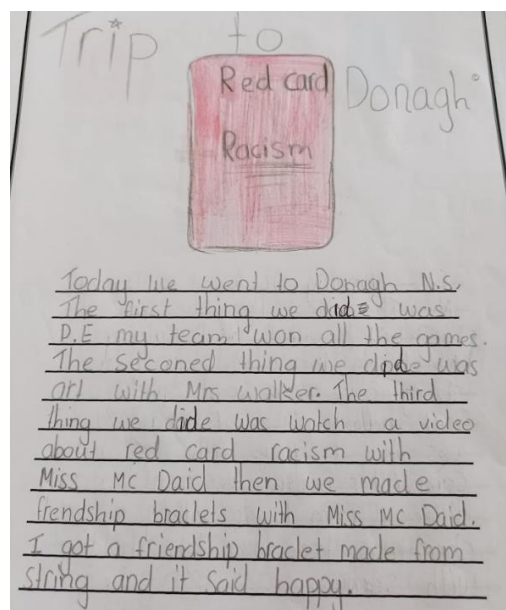 Trip to
Red card
Donagh
Racism
Today we went to Donagh N.S.
The first thing we dide was
P.E my team won all the games.
The seconed thing we dide was
art with Mrs walker. The third
thing we dide was watch a video
about red card racism with
Miss Mc Daid then we made
frendship braclets with Miss Mc Daid.
I got a friendship braclet made from
string and it said happy.